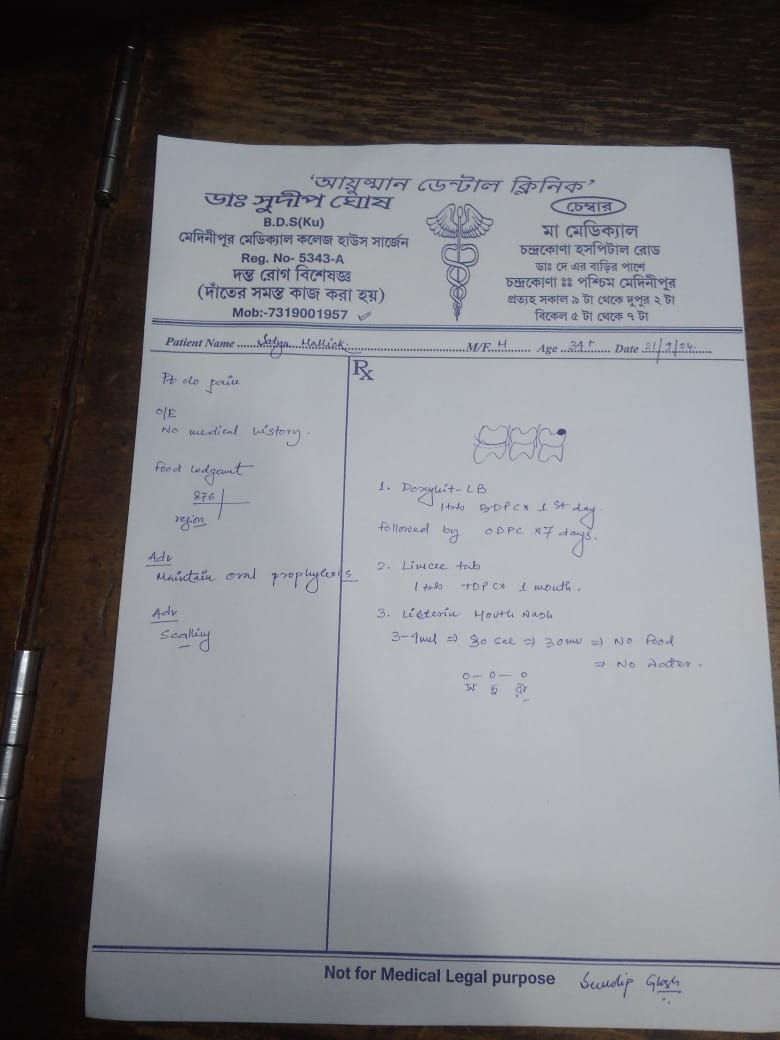 'আয়ুষ্মান ডেন্টাল ক্লিনিক'
ডাঃ সুদীপ ঘোষ
B.D.S(Ku)
মেদিনীপুর মেডিক্যাল কলেজ হাউস সার্জেন
Reg. No- 5343-A
দন্ত রোগ বিশেষজ্ঞ
(দাঁতের সমস্ত কাজ করা হয়)
Mob:-7319001957
চেম্বার
মা মেডিক্যাল
চন্দ্রকোণা হসপিটাল রোড
ডাঃ দে এর বাড়ির পাশে
চন্দ্রকোণা ঃঃ পশ্চিম মেদিনীপুর
প্রত্যহ সকাল ৯ টা থেকে দুপুর ২ টা
বিকেল ৫ টা থেকে ৭ টা
Patient Name Mallick M/F. M Age 34+ Date 21/9/24
Pt do pain
O/E
No medical history.
Food lodgement
876
region
Adv
Maintain oral prophylexis
Adv
Scalling
Rx
1. Doxykit-LB
1 tab BDPC x 1 st day.
followed by ODPC x 7 days.
2. Limcee tab
1 tab TDPC x 1 month.
3. Listerin Mouth Wash
3-4 ml ⇒ 30 sec ⇒ 30 ⇒ No food
⇒ No Water.
0 - 0 - 0
স দু রা
Not for Medical Legal purpose
Sundip Ghosh